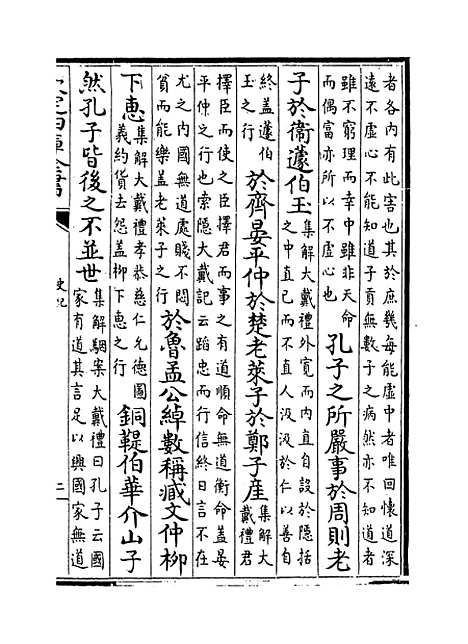 者各内有此害也其於庶幾每能虚中者唯回懷道深
遠不虚心不能知道子貢無數子之病然亦不知道者
雖不窮理而幸中雖非天命
而偶富亦所以不虚心也
孔子之所嚴事於周則老
子於衛蘧伯玉
集解大戴禮外寛而内直自設於隱括
之中直已而不直人汲汲於仁以善自
終盖蘧伯
玉之行
於齊晏平仲於楚老萊子於鄭子産
集解大
戴禮君
擇臣而使之臣擇君而事之有道順命無道衡命盖晏
平仲之行也索隱大戴記云蹈忠而行信終日言不在
尤之内國無道處賤不悶
貧而能樂盖老萊子之行
於魯孟公綽數稱臧文仲柳
下惠
集解大戴禮孝恭慈仁允徳圖
義約貨去怨盖柳下惠之行
銅鞮伯華介山子
然孔子皆後之不並世
集解駰案大戴禮曰孔子云國
家有道其言足以興國家無道
史記
二